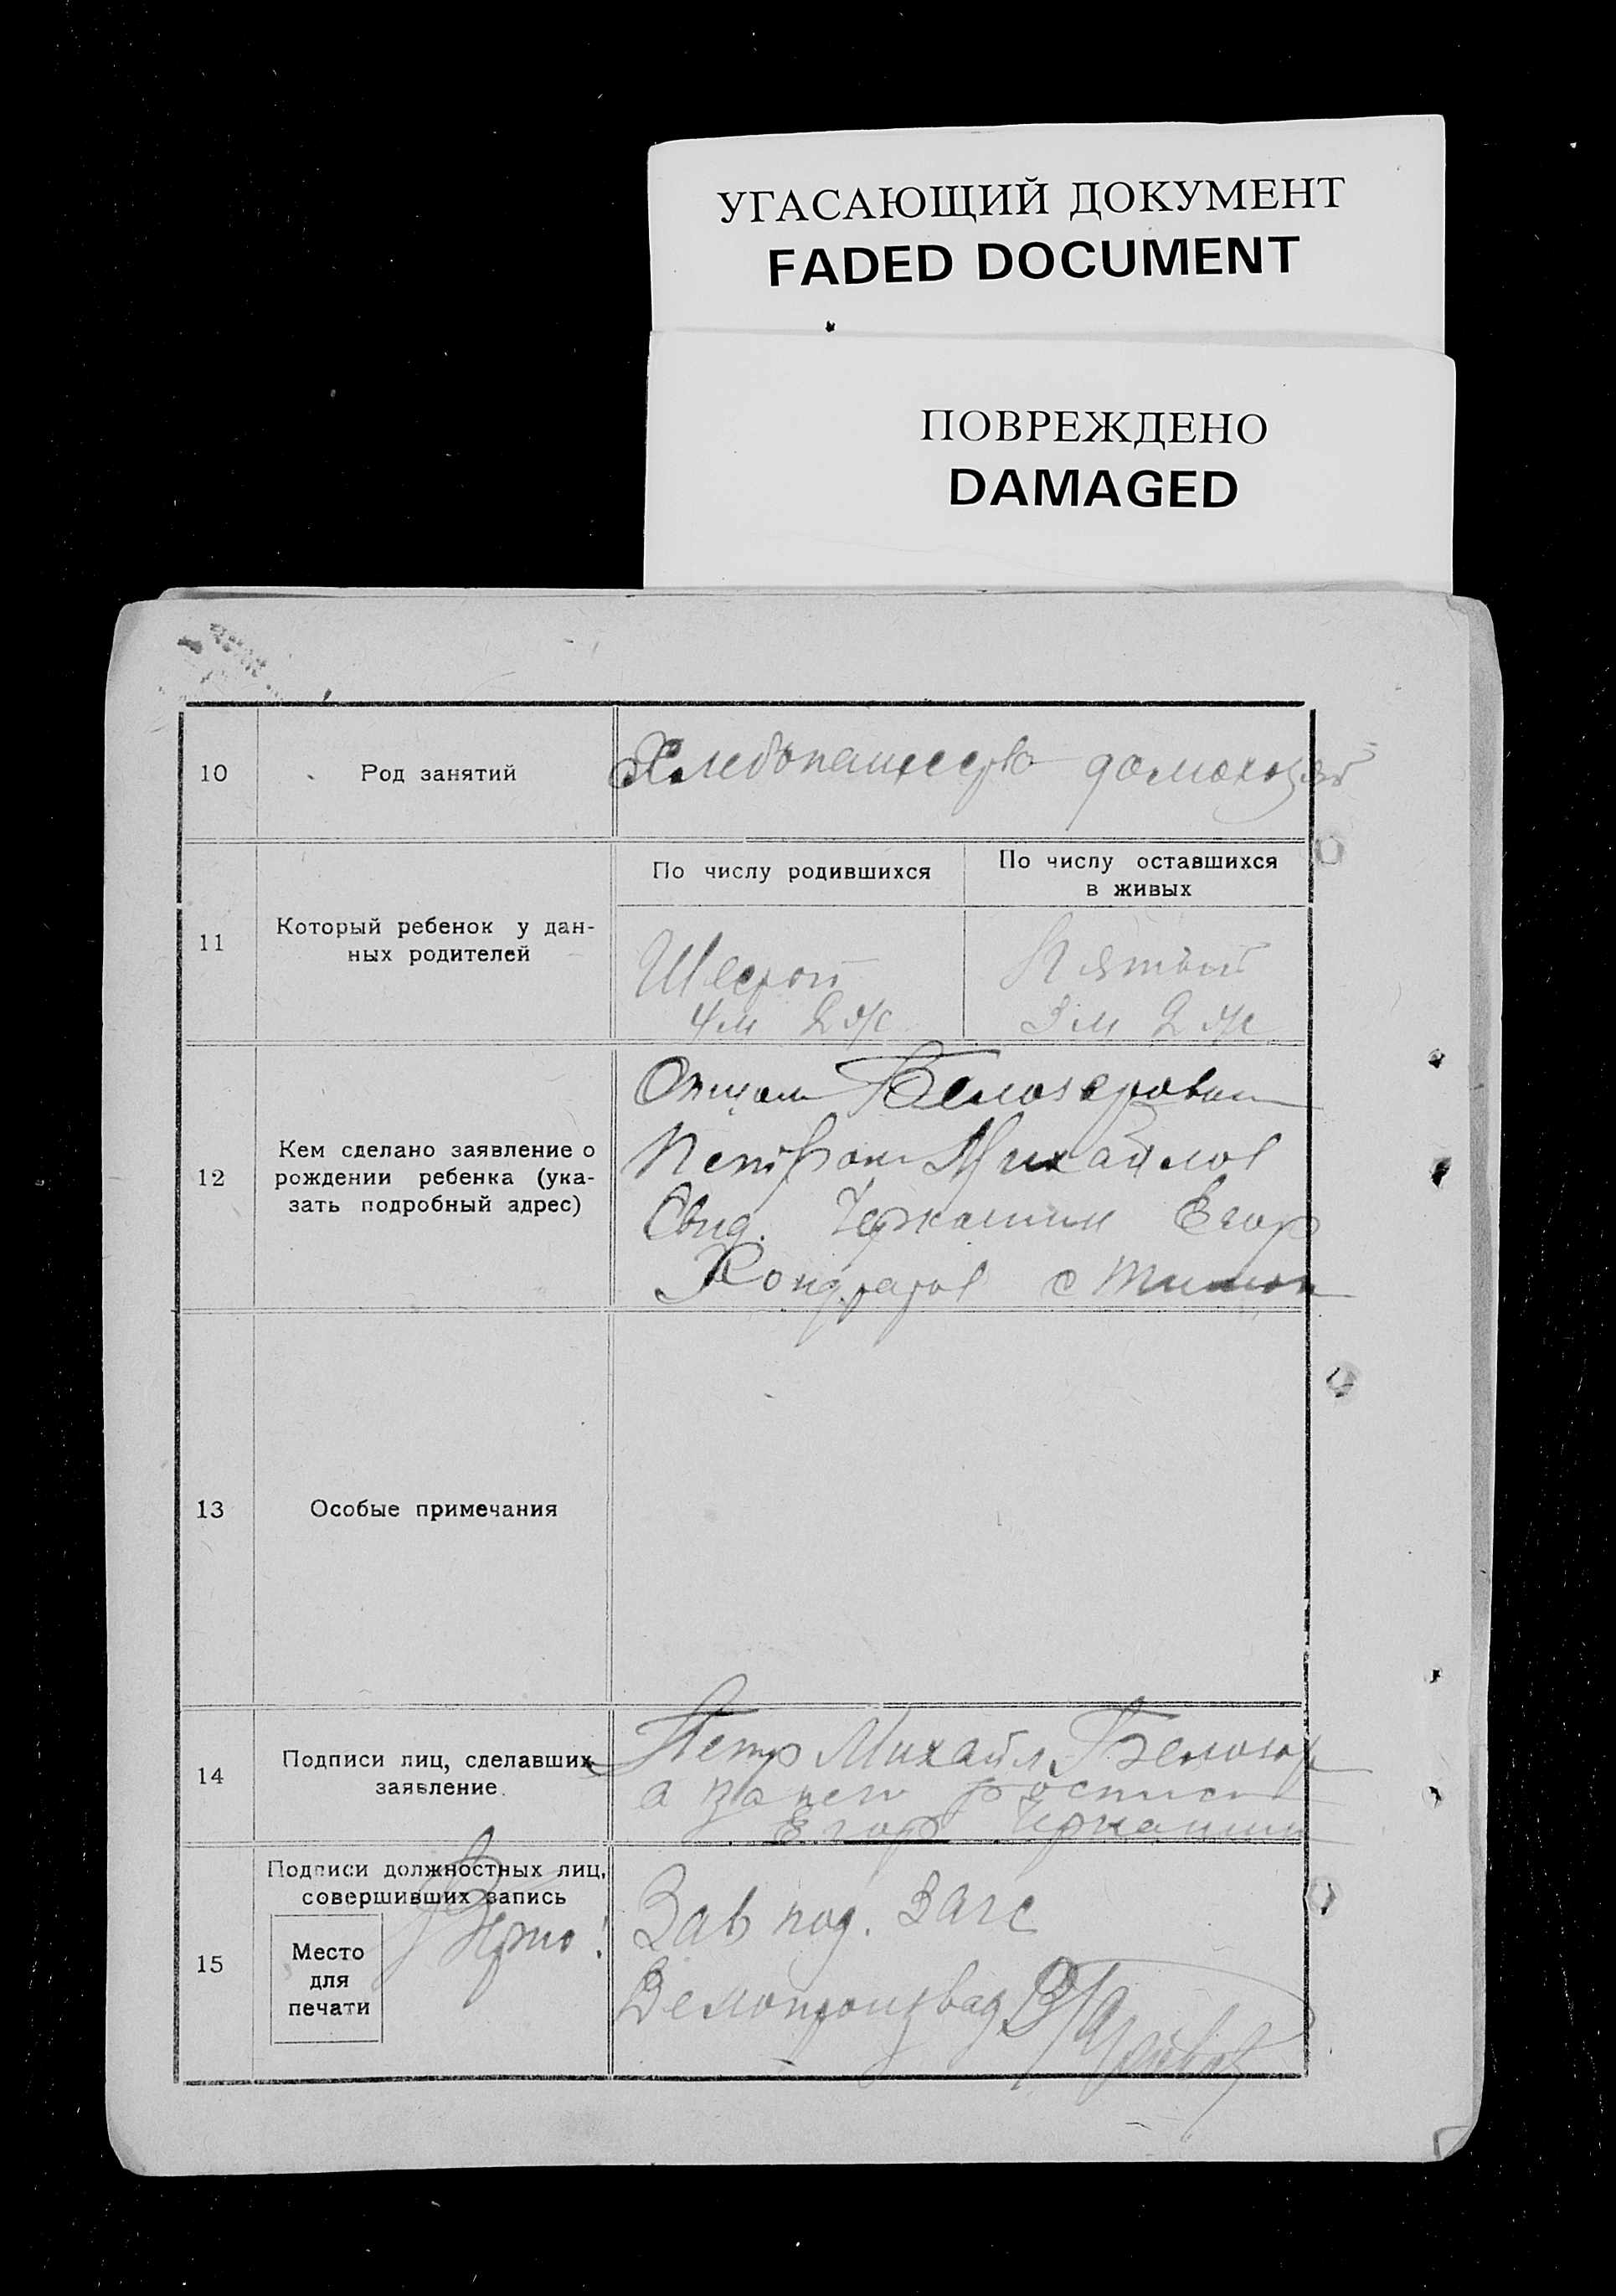 УГАСАЮЩИЙ ДОКУМЕНТ
FADED DOCUMENT
ПОВРЕЖДЕНО
DAMAGED
10
Род занятий
Хлебопашество домохоз
11
Который ребенок у дан-
ных родителей
По числу родившихся
По числу оставшихся
в живых
Шестой
4 м 2 ж
Пятый
3 м 2 ж
12
Кем сделано заявление о
рождении ребенка (ука-
зать подробный адрес)
Отцом Белозеровым
Петром Михайлов
Свид. Черкашин Егор
Кондратов с
13
Особые примечания
14
Подписи лиц, сделавших
заявление.
Петр Михайл. Белозер
а за него росписи
Егор Черкашин
15
Подписи должностных лиц,
совершивших запись
Место
для
печати
Верно!
Зав под. Загс
Делопроизвад